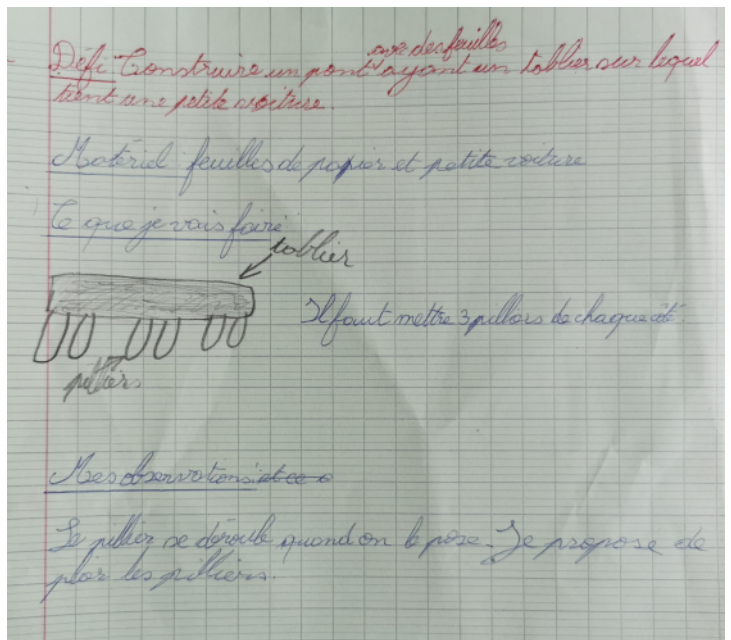 avec des feuilles
Défi Construire un pont ayant un tablier sur lequel
tient une petite voiture.
Matériel feuilles de papier et petite voiture
Ce que je vais faire
tablier
Il faut mettre 3 pilliers de chaque côté
pilliers
Mes observations et ce
Le pillier se déroule quand on le pose. Je propose de
plier les pilliers.